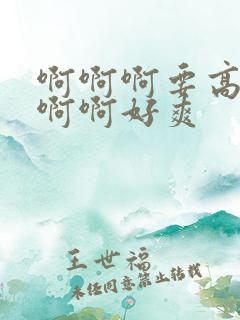 啊啊啊要高
啊啊好爽
王世福
未经同意禁止转载